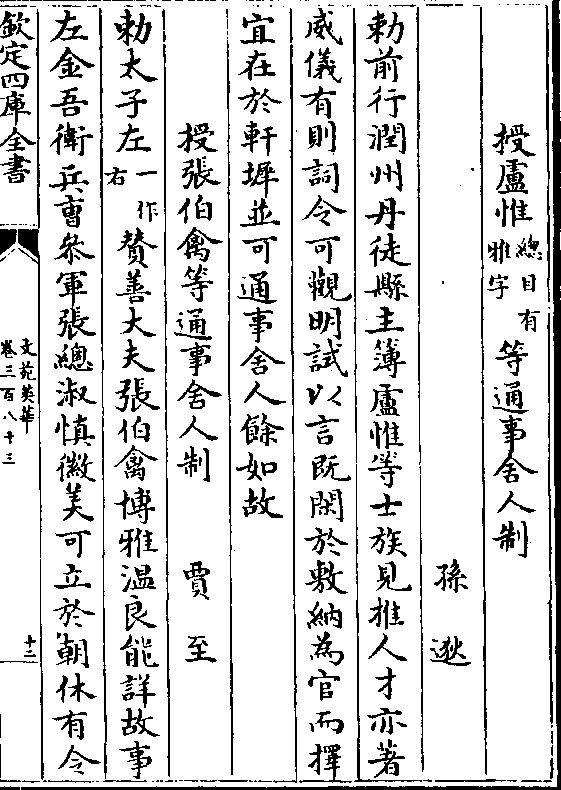 授盧惟總目有雅字等通事舍人制
孫逖
勅前行潤州丹徒縣主簿盧惟等士族見推人才亦著
威儀有則詞令可觀明試以言既閑於敷納為官而擇
宜在於軒墀並可通事舍人餘如故
授張伯禽等通事舍人制 賈至
勅太子左一作右贊善大夫張伯禽博雅温良能詳故事
左金吾衛兵曹叅軍張總淑慎徽美可立於朝休有令
欽定四庫全書
文苑英華
卷三百八十三
十二